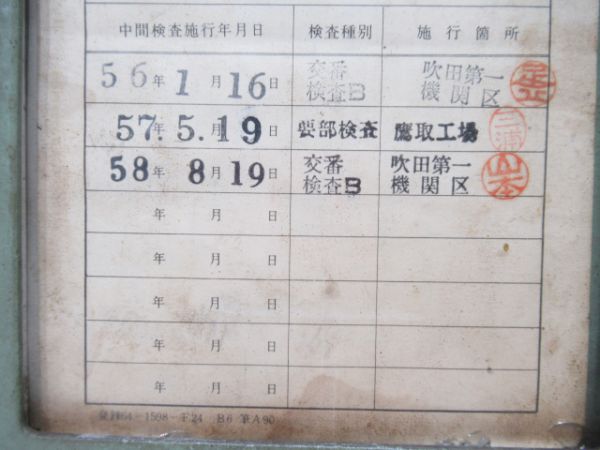 中間検査施行年月日 検査種別 施行箇所
56年1月16日 交番検査B 吹田第一機関区
57年5月19日 要部検査 鷹取工場 三浦
58年8月19日 交番検査B 吹田第一機関区 山本
年 月 日
年 月 日
年 月 日
年 月 日
年 月 日